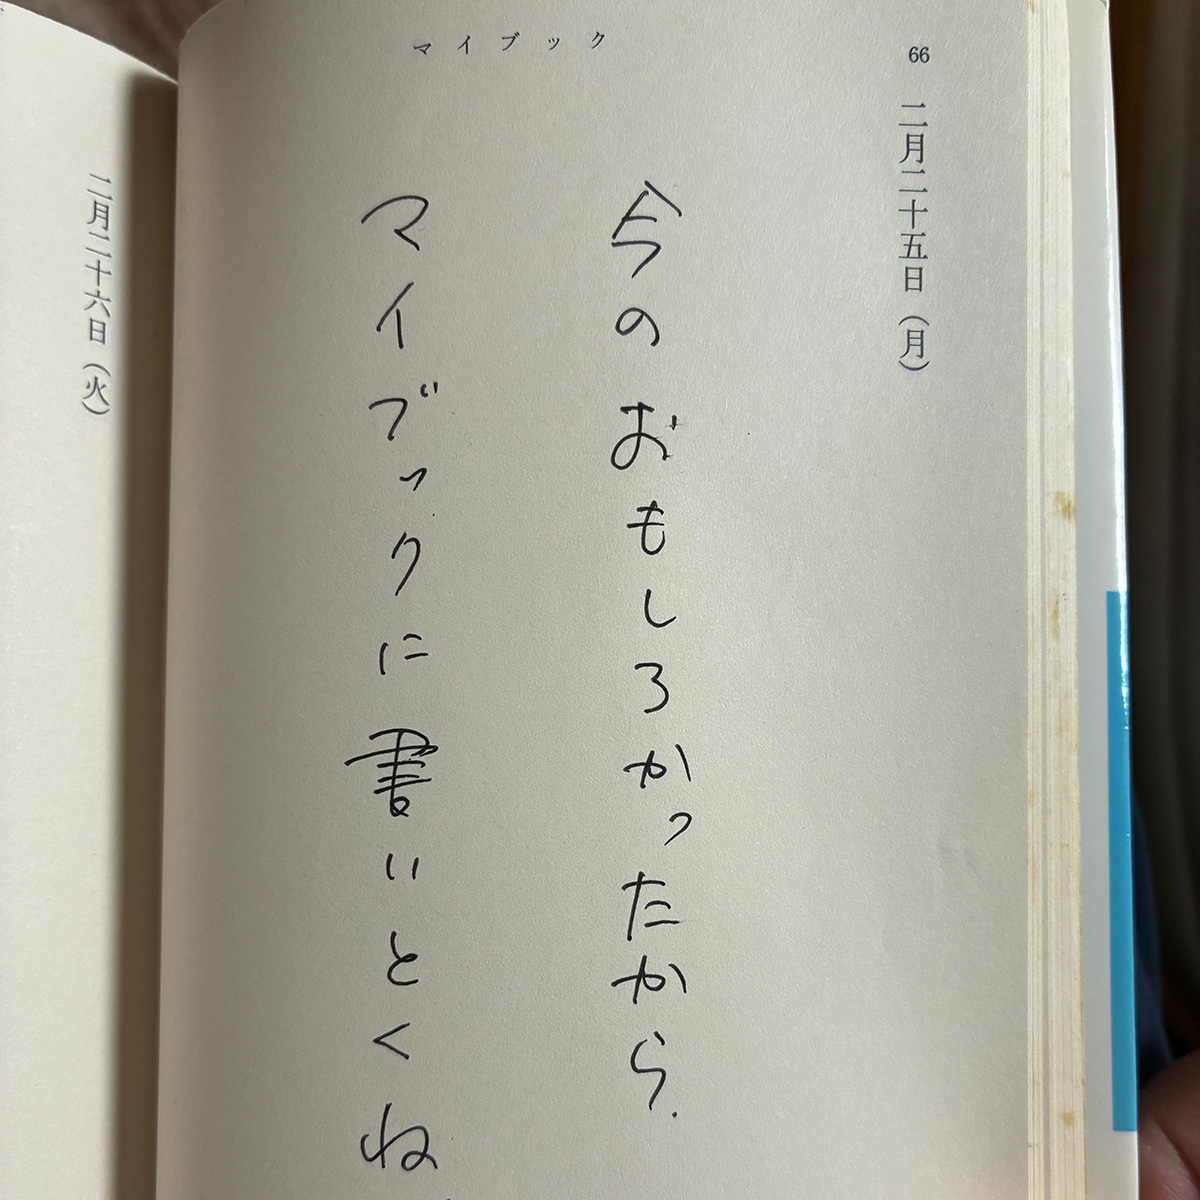 マイブック
66
二月二十五日（月）
今のおもしろかったから.
マイブックに書いとくね
二月二十六日（火）